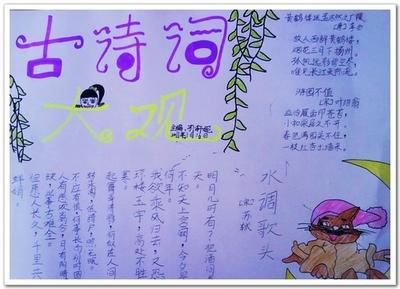 古诗词
大观
主编:
黄鹤楼送孟浩然之广陵
(唐)李白
故人西辞黄鹤楼,
烟花三月下扬州。
孤帆远影碧空尽,
唯见长江天际流。
游园不值
(宋)叶绍翁
应怜屐齿印苍苔,
小扣柴扉久不开。
春色满园关不住,
一枝红杏出墙来。
水调歌头
宋 苏轼
明月几时有?把酒问
不知天上宫阙,今夕是
何年。
我欲乘风归去,又恐
琼楼玉宇,高处不胜
寒。
起舞弄清影,何似在人间
转朱阁,低绮户,照无眠。
不应有恨,何事长向别时圆
人有悲欢离合,月有阴晴圆
缺,此事古难全。
但愿人长久,千里共
婵娟。